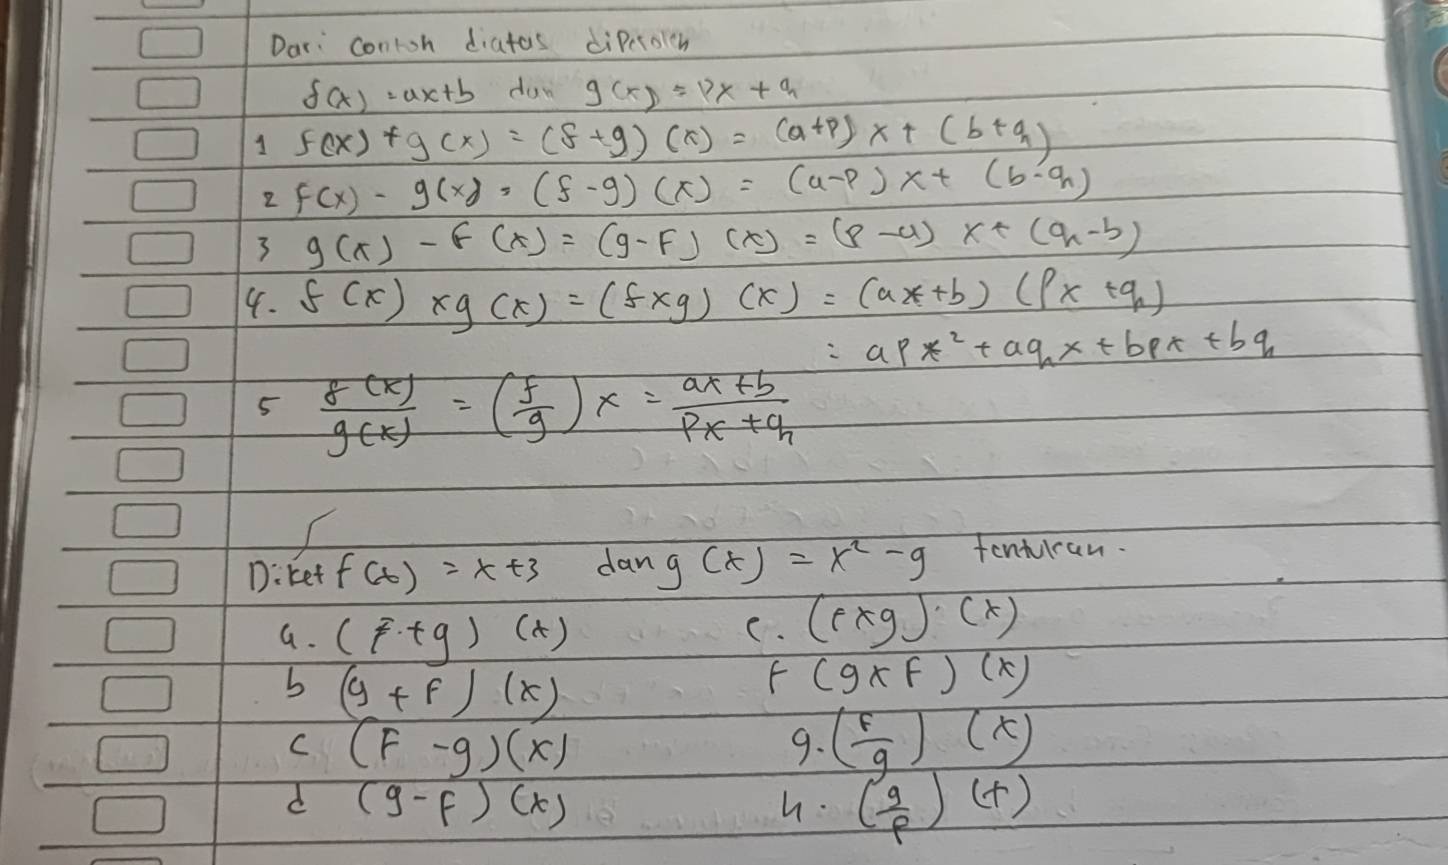 Dari contoh diatas diperoleh
f(x) = ax+b dan g(x) = px + q
1 f(x) + g(x) = (f + g) (x) = (a+p) x + (b+q)
2 f(x) - g(x) = (f - g) (x) = (a-p) x + (b-q)
3 g(x) - f (x) = (g - F) (x) = (p - a) x + (q - b)
4. f (x) x g (x) = (f x g) (x) = (ax+b) (px + q)
= apx² + aqx + bpx + bq
5 f(x)/g(x) = (f/g) x = ax + b/px + q
Diket f(x) = x + 3 dan g (x) = x² - 9 tentukan.
a. (f + g) (x) e. (f x g) (x)
b (g + F) (x) F (g x F) (x)
c (F - g) (x) g. (F/g) (x)
d (g - F) (x) h. (g/f) (x)